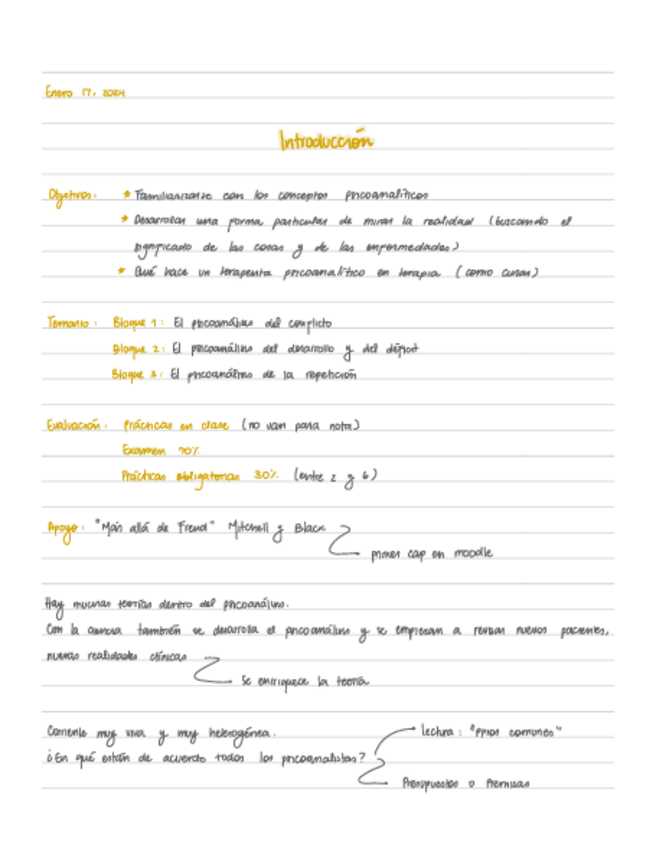 Enero 17, 2024
Introducción
Objetivos: * Familiarizarse con los conceptos psicoanalíticos
* Desarrollar una forma particular de mirar la realidad (buscando el
significado de las cosas y de las enfermedades)
* Qué hace un terapeuta psicoanalítico en terapia (como curan)
Temario: Bloque 1: El psicoanálisis del conflicto
Bloque 2: El psicoanálisis del desarrollo y del déficit
Bloque 3: El psicoanálisis de la repetición
Evaluación: Prácticas en clase (no van para nota)
Examen 70%
Prácticas obligatorias 30% (entre 2 y 6)
Apoyo: "Más allá de Freud" Mitchell y Black
primer cap en moodle
Hay muchas teorías dentro del psicoanálisis.
Con la ciencia también se desarrolla el psicoanálisis y se empiezan a revisar nuevos pacientes,
nuevas realidades clínicas
Se enriquece la teoría
Corriente muy viva y muy heterogénea.
lectura: "ppios comunes"
¿En qué están de acuerdo todos los psicoanalistas?
Presupuestos o Premisas